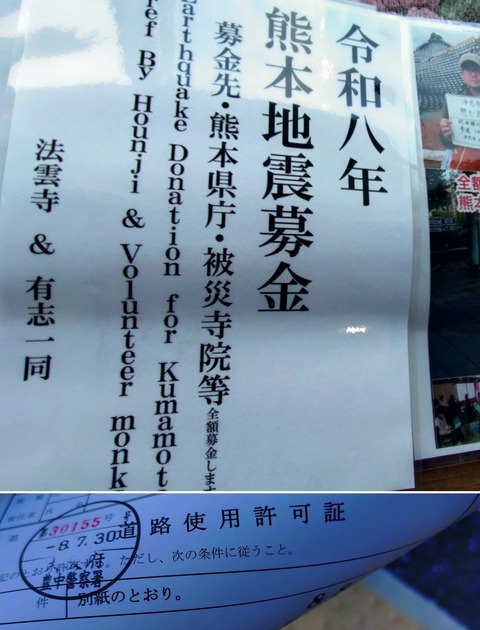 令和八年
熊本地震募金
募金先・熊本県庁・被災寺院等全額募金します
Earthquake Donation for Kumamot
ref By Hounji & Volunteer monk
法雲寺 & 有志一同
全額
熊本
第30155号
-8.7.30
道路使用許可証
豊中警察署
ただし、次の条件に従うこと。
件 別紙のとおり。